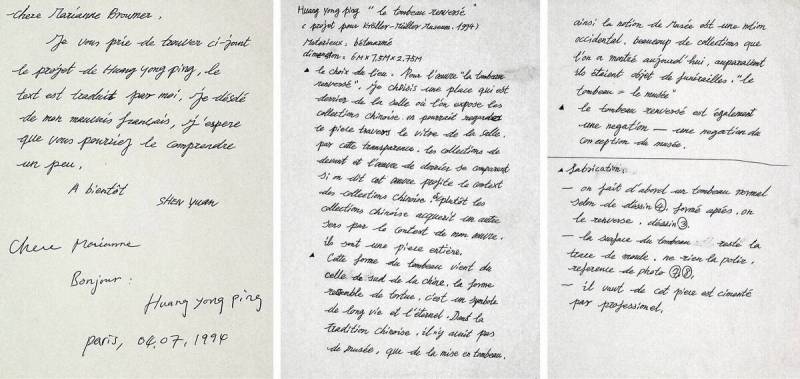 Chere Marianne Brouwer,
Je vous prie de trouver ci-joint
le projet de Huang Yong ping, le
text est traduit par moi, Je désolé
de mon mauvais français, J'espere
que vous pourriez le comprendre
un peu.
A bientôt
SHEN YUAN
Chere Marianne
Bonjour.
Huang Yong Ping
paris, 04.07, 1994
Huang yong ping " le tombeau renversé "
( projet pour Kröller-Müller Museum. 1994)
Materiaux: béton armé
dimension: 6M x 7.5M x 2.75M
▲ le choix de lieu. Pour l'œuvre "le tombeau
renversé". Je choisis une place qui est
derrier de la salle où l'on expose les
collections chinoise. on pourrait regarder
le piece travers le vitre de la salle.
par cette transparence. les collections de
devant et l'œuvre de derrier se comparent
si on dit cet œuvre profite le context
des collections chinoise. plutôt les
collections chinoise acquerit un autre
sens par le context de mon œuvre.
ils sont une piece entière.
▲ Cette forme du tombeau vient du
celle de sud de la chine. la forme
resemble de tortue. c'est un symbole
de long vie et l'éternel. Dans la
tradition chinoise. il n'y avait pas
de musée, que de la mise en tombeau.
ainsi la notion de Musée est une notion
occidental. beaucoup de collections que
l'on a montré aujourd'hui, auparavant
ils étaient objet de funérailles. "le
tombeau = le musée"
▲ le tombeau renversé est également
une negation — une negation du
conception de musée.
▲ fabrication:
— on fait d'abord un tombeau normal
selon de déssin ④. formé après. on
le renverse. déssin ③.
— la surface du tombeau resté la
trace de moule. ne rien la polir.
reference de photo
— il vaut de cet piece est cimenté
par professionel.